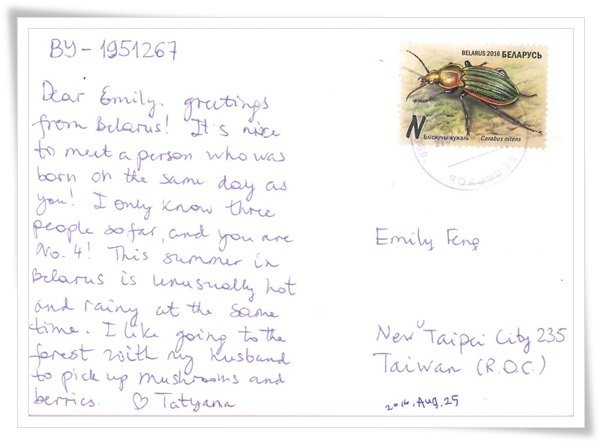 BY-1951267
Dear Emily, greetings
from Belarus! It's nice
to meet a person who was
born on the same day as
you! I only know three
people so far, and you are
No. 4! This summer in
Belarus is unusually hot
and rainy at the same
time. I like going to the
forest with my husband
to pick up mushrooms and
berries. ♡ Tatyana
BELARUS 2016 БЕЛАРУСЬ
N
Бліскучы жужаль Carabus nitens
Emily Feng
New Taipei City 235
Taiwan (R.O.C.)
2016.Aug.25